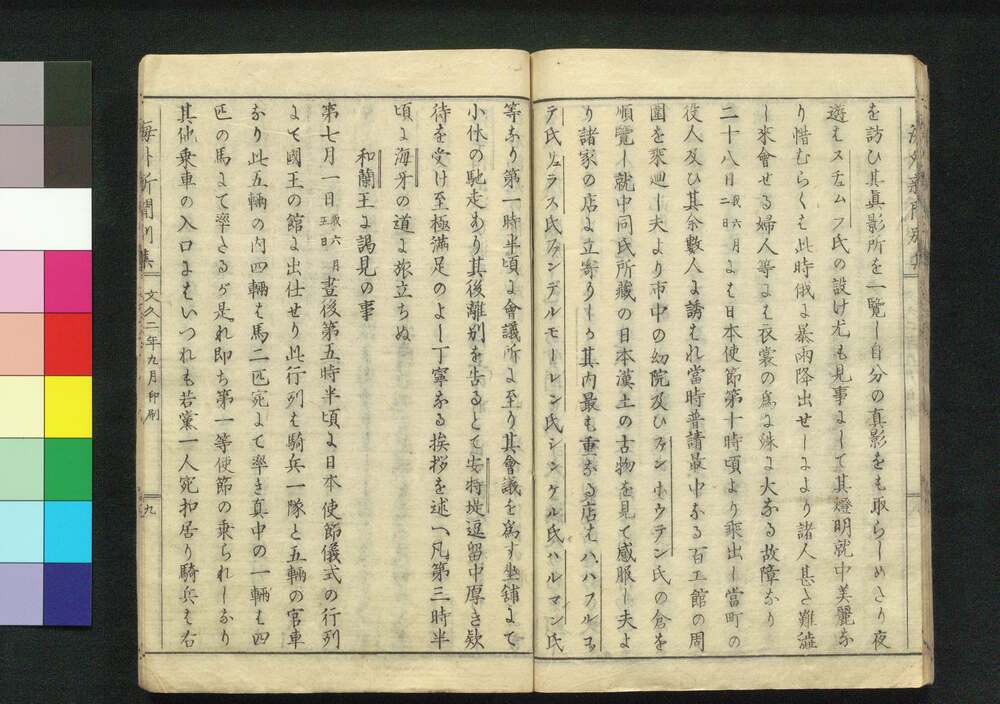 を訪ひ其眞影所を一覽し自分の真影をも取らしめたり夜
遊はスチムフ氏の設け尤も見事にして其燈明就中美麗な
り惜むらくは此時俄に暴雨降出せしにより諸人甚た難澁
し來會せる婦人等には衣裳の爲に殊に大なる故障なり
二十八日我六月二日には日本使節第十時頃より乘出し當町の
役人及ひ其余數人に誘はれ當時普請最中なる百工館の周
圍を乘廻し夫より市中の幼院及ひファンホウテン氏の倉を
順覽し就中同氏所藏の日本漢土の古物を見て感服し夫よ
り諸家の店に立寄りしか其内最も重なる店はハハフルコッ
テ氏リュラス氏ファンデルモーレン氏シンケル氏ハルマン氏
等なり第一時半頃に會議所に至り其會議を爲す坐鋪にて
小休の馳走あり其後離別を告るとて安特堤逗留中厚き欵
待を受け至極滿足のよし丁寧なる挨拶を述へ凡第三時半
頃に海牙の道に旅立ちぬ
和蘭王に謁見の事
第七月一日我六月五日晝後第五時半頃に日本使節儀式の行列
にて國王の館に出仕せり此行列は騎兵一隊と五輛の官車
なり此五輛の内四輛は馬二匹宛にて牽き真中の一輛は四
匹の馬にて牽たるが是れ即ち第一等使節の乘られしなり
其他乘車の入口にはいつれも若黨一人宛扣居り騎兵は右
海外新聞別集
文久二年九月印刷
九